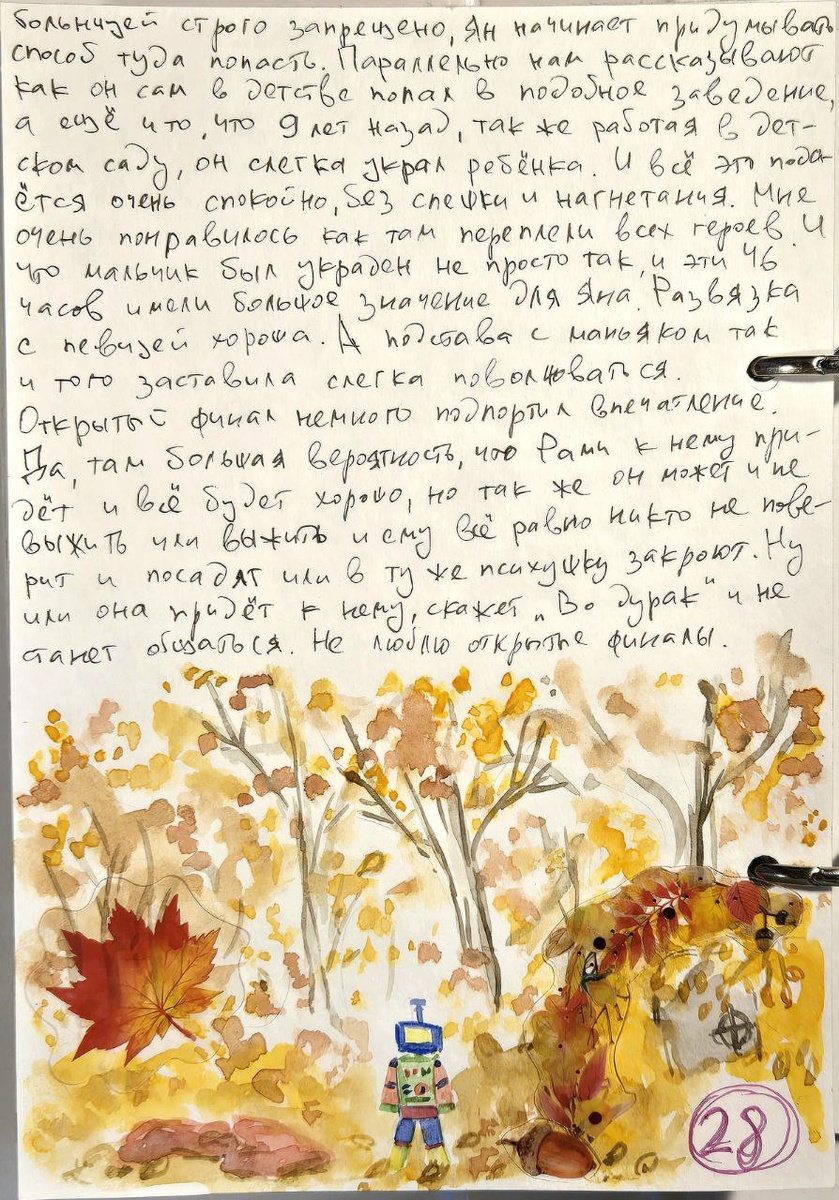 больницей строго запрещено, Ян начинает придумывать
способ туда попасть. Параллельно нам рассказывают
как он сам в детстве попал в подобное заведение,
а ещё и то, что 9 лет назад, так же работая в дет-
ском саду, он слегка украл ребёнка. И всё это пода-
ётся очень спокойно, без спешки и нагнетания. Мне
очень понравилось как там переплели всех героев. И
что мальчик был украден не просто так, и эти 46
часов имели большое значение для Яна. Развязка
с певицей хороша. А подстава с маньяком так
и того заставила слегка поволноваться.
Открытый финал немного подпортил впечатление.
Да, там большая вероятность, что Рами к нему при-
дёт и всё будет хорошо, но так же он может и не
выжить или выжить и ему всё равно никто не пове-
рит и посадят или в ту же психушку закроют. Ну
или она придёт к нему, скажет „Во дурак" и не
станет общаться. Не люблю открытые финалы.
28